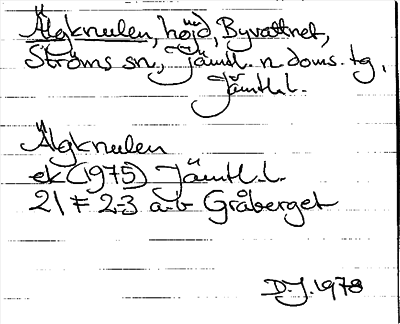 Älgknulen, höjd, Byvattnet,
Ströms sn, Jämtl. n. doms. tg,
Jämtl. l.
Älgknulen
ek (1975) Jämtl. l.
21 F 2-3 a-b Gråberget
D.J. 1978